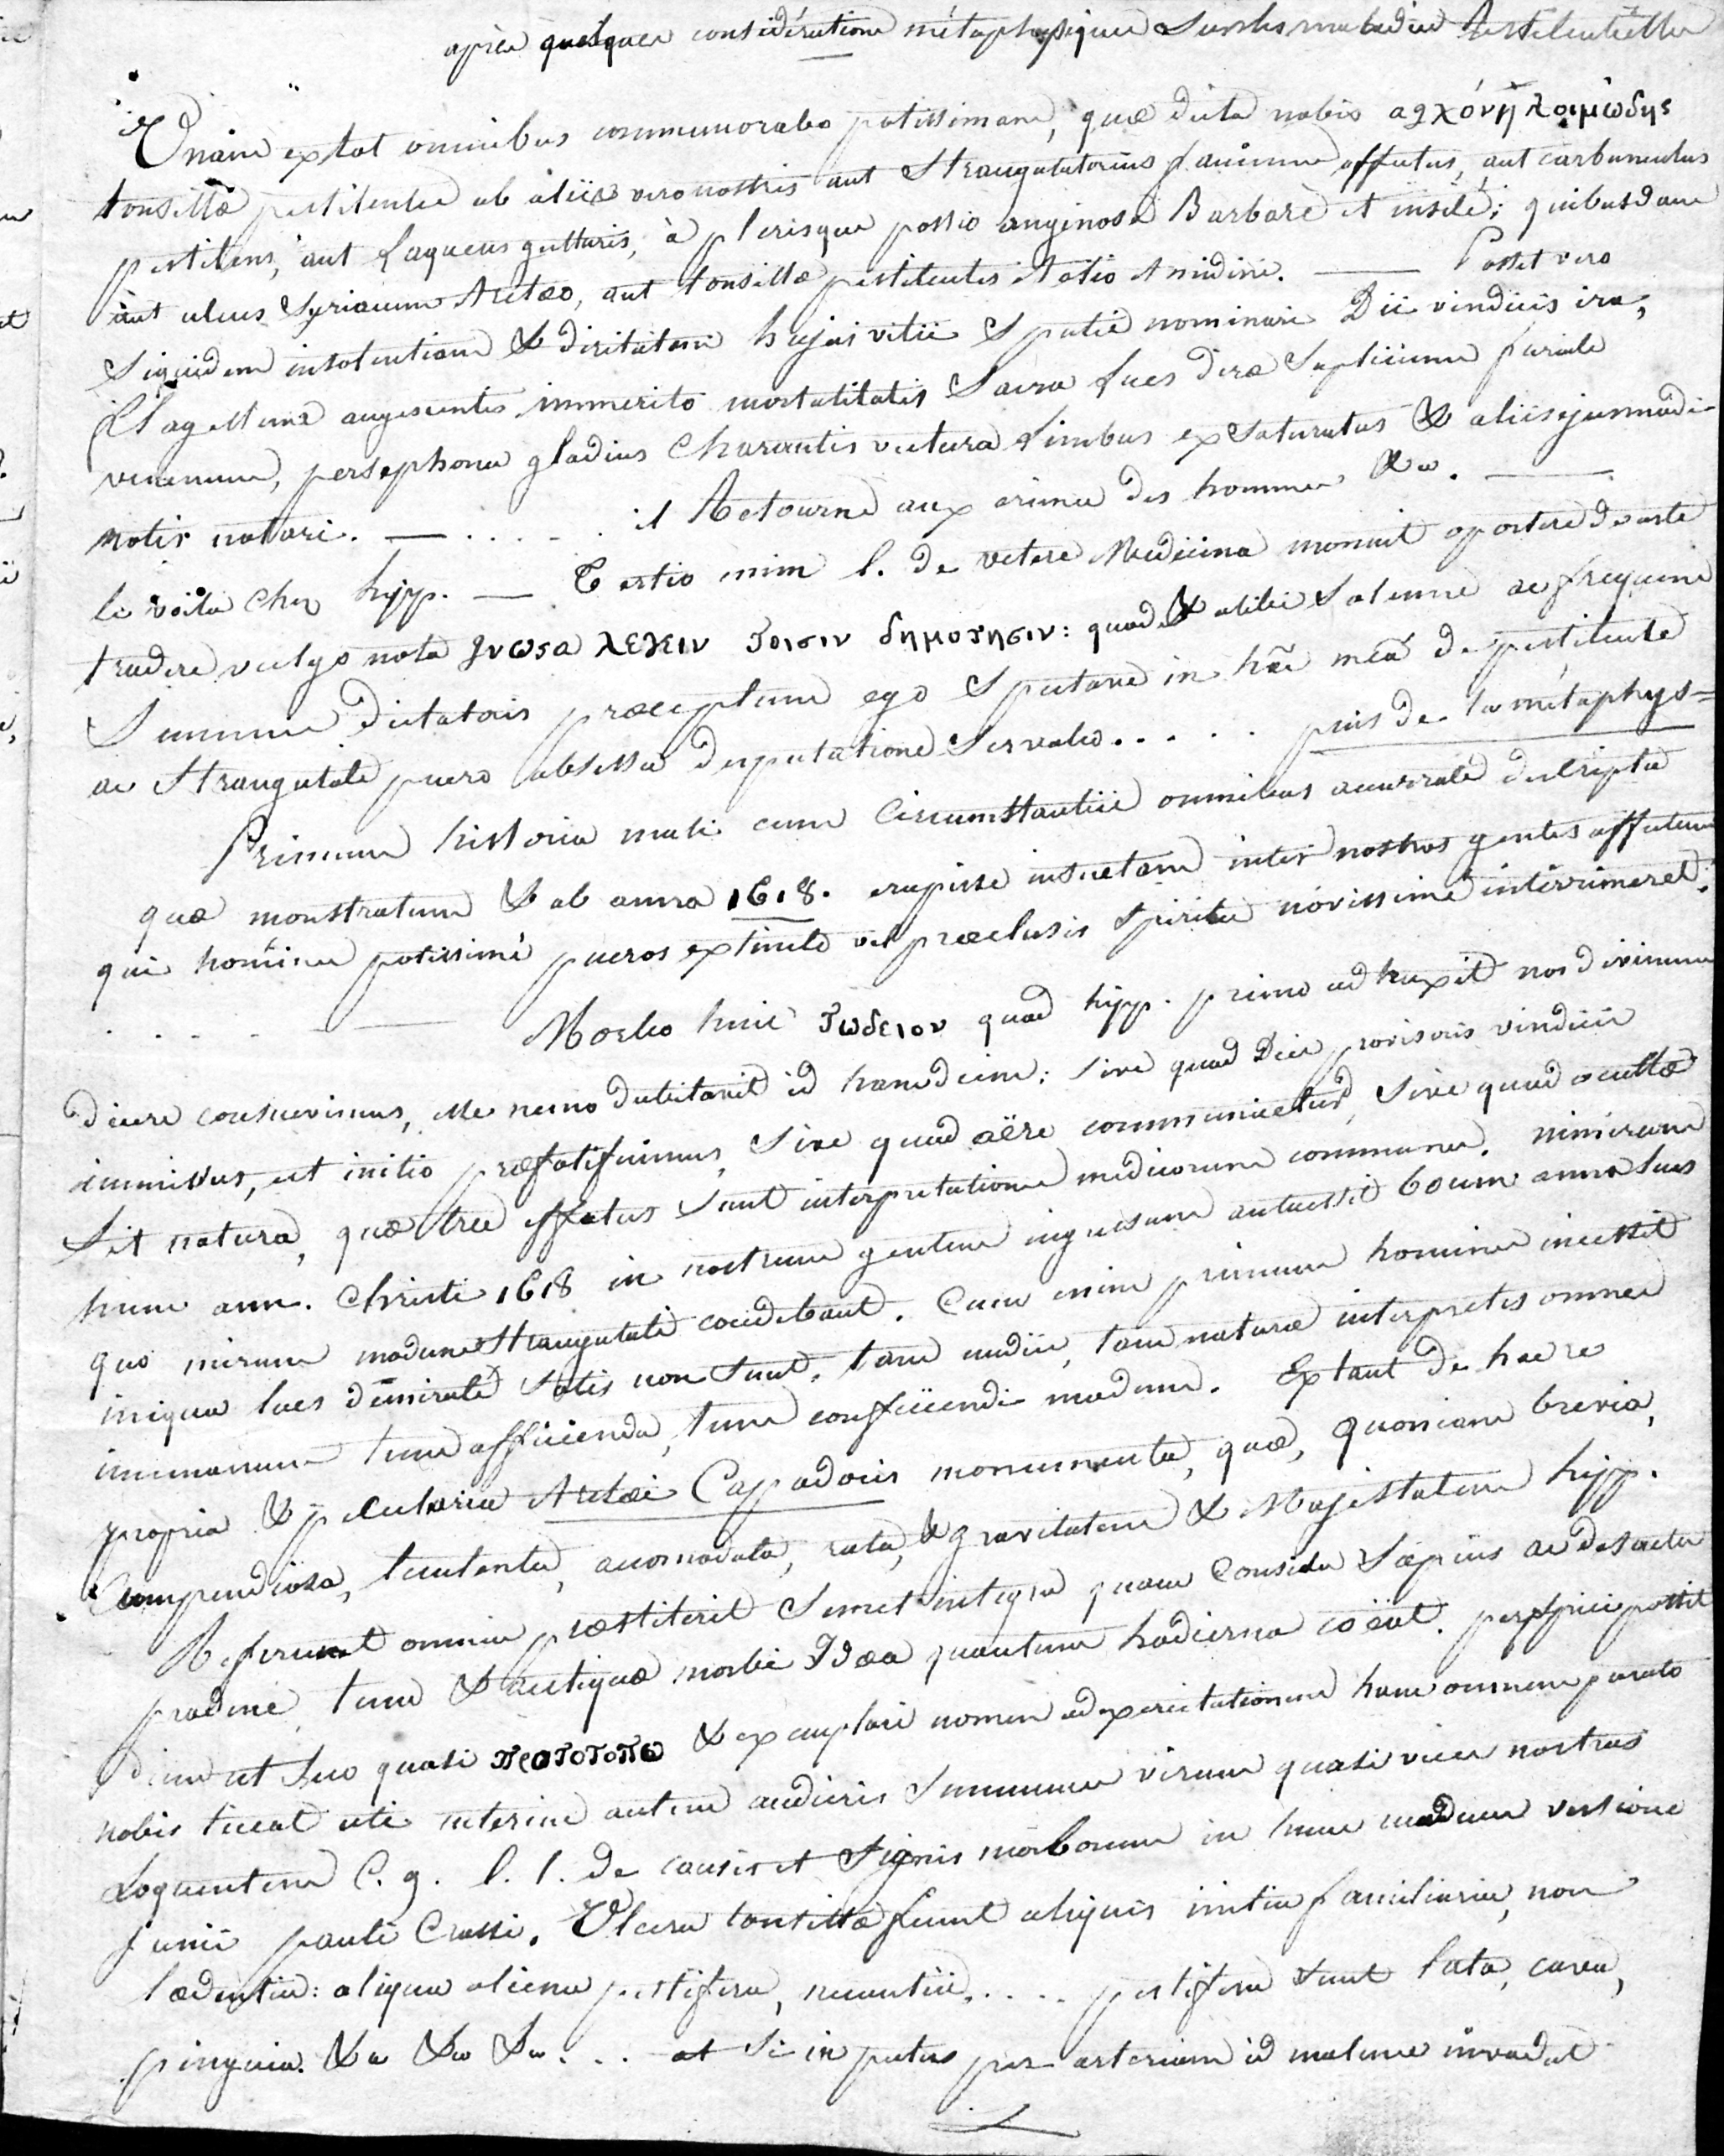 après quelques considérations métaphysiques sur les maladies Pestilentielles
Unam extat omnibus commemorabo potissimam, quæ dicta nobis αγχόνη λοιμώδης
tonsillæ pestilentes ab aliis vero nostris aut Strangulatorius faucium affectus, aut carbunculus
pestilens, aut Laqueus gutturis, à plerisque passio anginosa Barbarè et insulsé; quibusdam
aut ulcus Syriacum Aretæo, aut tonsillæ pestilentes Aetio Amideno. — Posset vero
Siquidem insolentiam & diritatem hujus vitii Spectes nominari Dii vindicis ira,
Flagellum augescentis immerito mortalitatis Sacra Lues diræ Supplicium furiale
venenum, persephones gladius Charontis vectura funibus exsaturatus & aliis ejusmodi
notis notari. — . . . . . il Retourne aux crimes des hommes &c. —
le voila chez hipp. — Tertio enim l. de vetere Medicina monuit oportere de arte
tradere vulgo nota γνωσα λεγειν τοισιν δημοτησιν: quod & alibi Solemne ac frequens
Summi dictatoris præceptum ego Spectare in hac meâ de pestilente
ac Strangulate puero obsessa disputatione Servabo. . . . . puis de la métaphys=
Primum historia mali cum Circumstantiis omnibus accurate descripta
quæ monstratum & ab anno 1618. erupisse insuetam inter nostros gentes affectum
qui homines potissimé pueros extincto vel præclusis Spiritu novissime interrimeret.
. . . . — Morbo huic τωδειον quod hipp. primo adhuxit nos divinum
dicere consuevimus, esse nemo dubitavit id hauddum: sive quod Diis provisoris vindicis
immissus, ut initio præfati fuimus, Sive quod aëre communicetur, Sive quod occultæ
Sit natura, quæ tres effatus Sunt interpretationes medicorum communes. nimirum
hunc ann. Christi 1618 in nostrum gentem ingressum antecessit boum anno lues
quo mirum modum Strangulati concidebant. Cum enim primum homines incessit
iniqua lues demirati Satis non Sunt, tam medici, tam naturæ interpretes omnes
immanem tum afficiendi, tum conficiendi modum. Extant de hac re
propria & pecularia Aretæi Cappadocis monumenta, quæ, quoniam brevia,
compendiosa, luculenta, accomodata, rata, & gravitatem & Majestatem hipp.
Referunt omnia præstiterit Semel integra quam Considu Sæpius ac desacta
prodine, tum & antiquæ morbi Idæa quantum hodierna coëat. perspici possit
dum ut Suo quasi πρωτοτοπω & exemplari nomen ad exercitationem hanc omnem parato
nobis liceat uti interim autem audieris Summum virum quasi vices nostras
Loquentem C. 9. l. 1. de causis et Signis morborum in hunc modum versione
Junii pauli Crassi. Ulcera tonsillæ fiunt aliquis initia familiaria, non
lædentia: aliqua aliena pestifera, necantiis. . . . pestifera sunt lata, cava,
pinguia. &c &c &c. . . at Si in pectus per arteriam id malum invadat